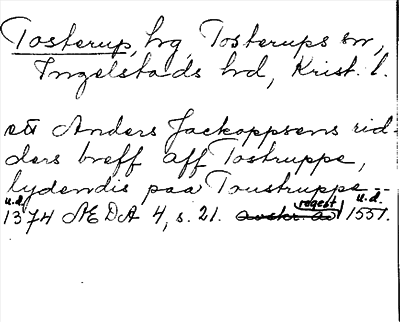 Tosterup, hg, Tosterups sn,
Ingelstads hd, Krist. l.
ett Anders Jackoppsens rid-
ders breff aff Tostruppe,
lydendis paa Toustruppe --
u.d. regest u.d.
1374 ÆDA 4, s. 21. avskr. av 1551.